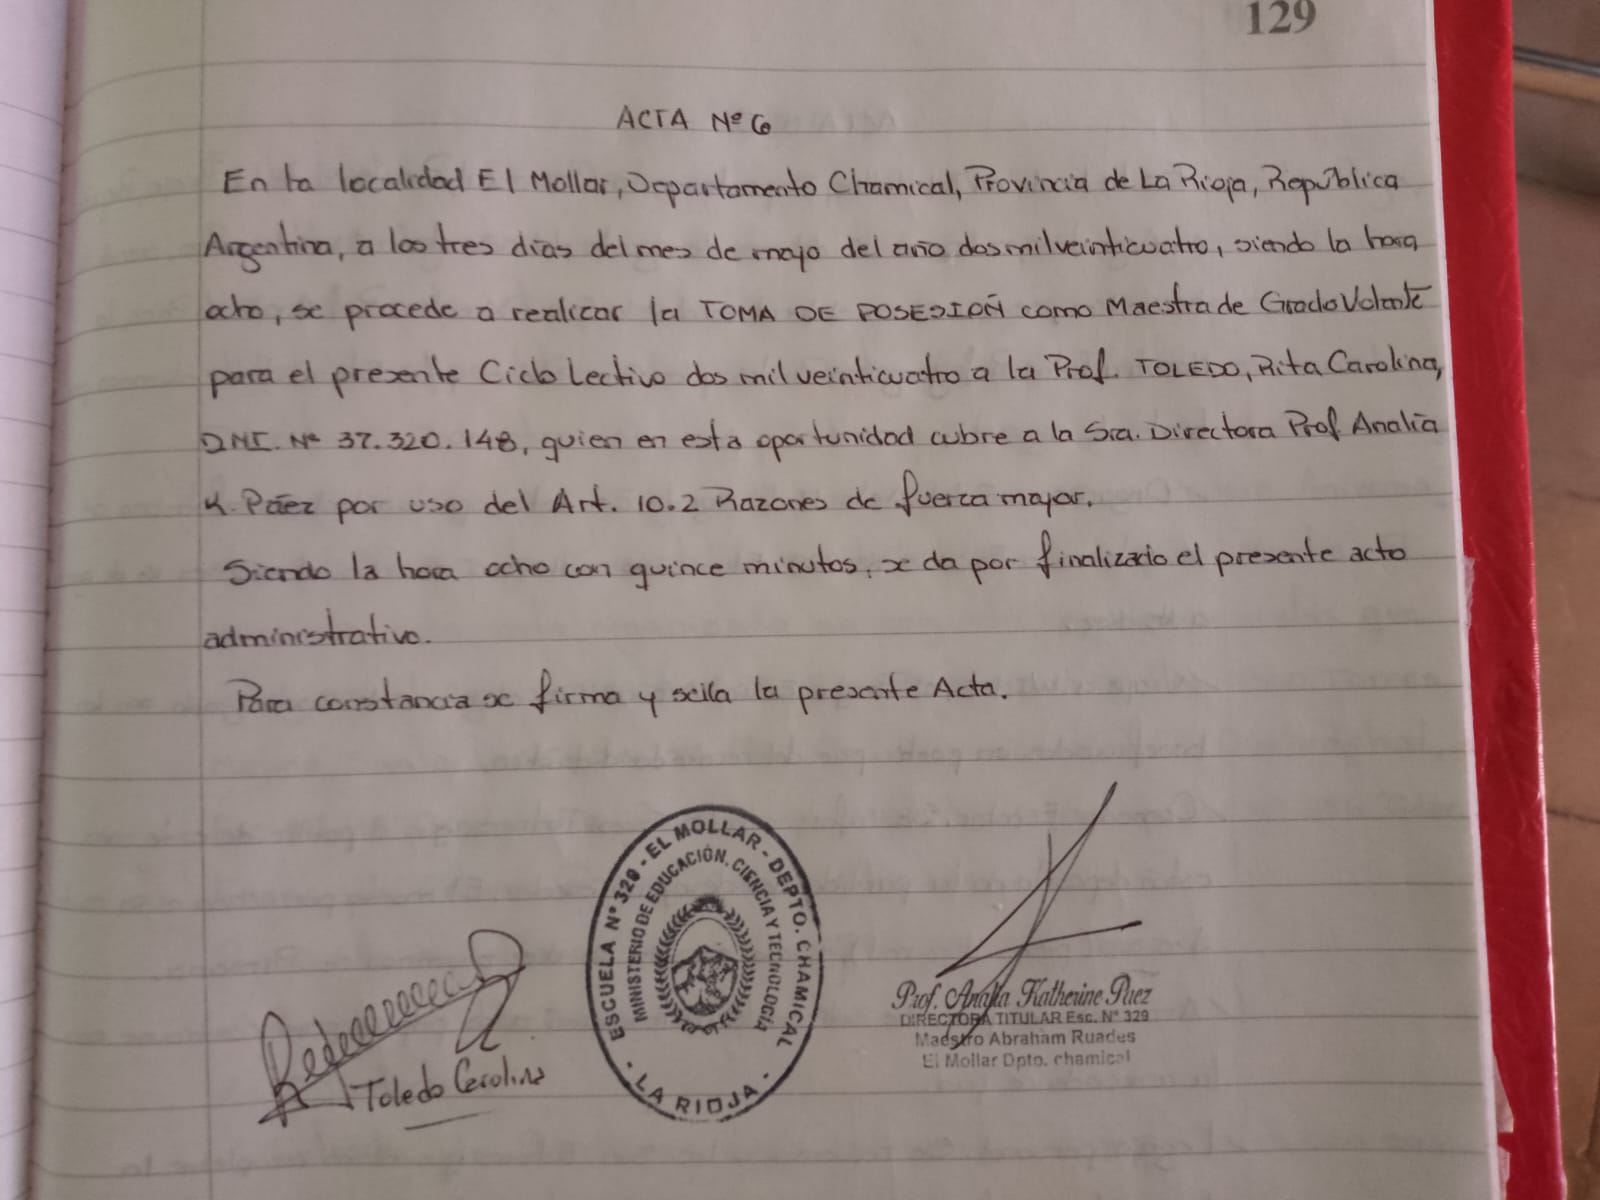 129
ACTA Nº 6
En la localidad El Mollar, Departamento Chamical, Provincia de La Rioja, República
Argentina, a los tres días del mes de mayo del año dos mil veinticuatro, siendo la hora
ocho, se procede a realizar la TOMA DE POSESIÓN como Maestra de Grado Volante
para el presente Ciclo Lectivo dos mil veinticuatro a la Prof. TOLEDO, Rita Carolina,
DNI. Nº 37.320.148, quien en esta oportunidad cubre a la Sra. Directora Prof. Analía
K. Páez por uso del Art. 10.2 Razones de fuerza mayor.
Siendo la hora ocho con quince minutos, se da por finalizado el presente acto
administrativo.
Para constancia se firma y sella la presente Acta.
ESCUELA Nº 329 - EL MOLLAR - DEPTO. CHAMICAL
MINISTERIO DE EDUCACIÓN, CIENCIA Y TECNOLOGÍA
- LA RIOJA -
Toledo Carolina
Prof. Analía Katherine Paez
DIRECTORA TITULAR Esc. Nº 329
Maestro Abraham Ruades
El Mollar Dpto. chamical